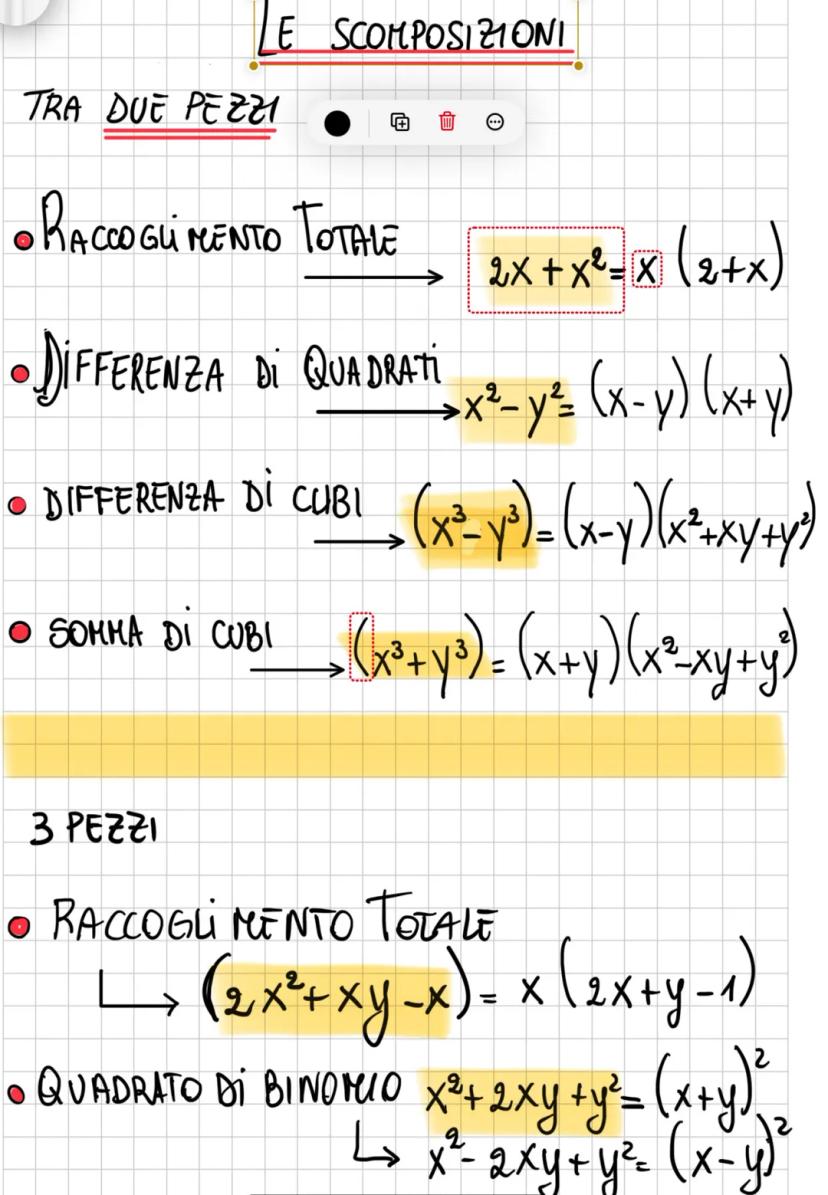 LE SCOMPOSIZIONI
TRA DUE PEZZI
• RACCOGLIMENTO TOTALE
→ 2x + x² = x (2+x)
• DIFFERENZA Di QUADRATi
→ x² - y² = (x-y) (x+y)
• DIFFERENZA Di CUBI
→ (x³ - y³) = (x-y)(x²+xy+y²)
• SOMMA Di CUBI
→ (x³+y³) = (x+y)(x²-xy+y²)
3 PEZZI
• RACCOGLiMENTO TOTALE
↳ (2x²+xy-x) = x (2x+y-1)
• QUADRATO Di BINOMIO x²+2xy+y² = (x+y)²
↳ x²-2xy+y² = (x-y)²